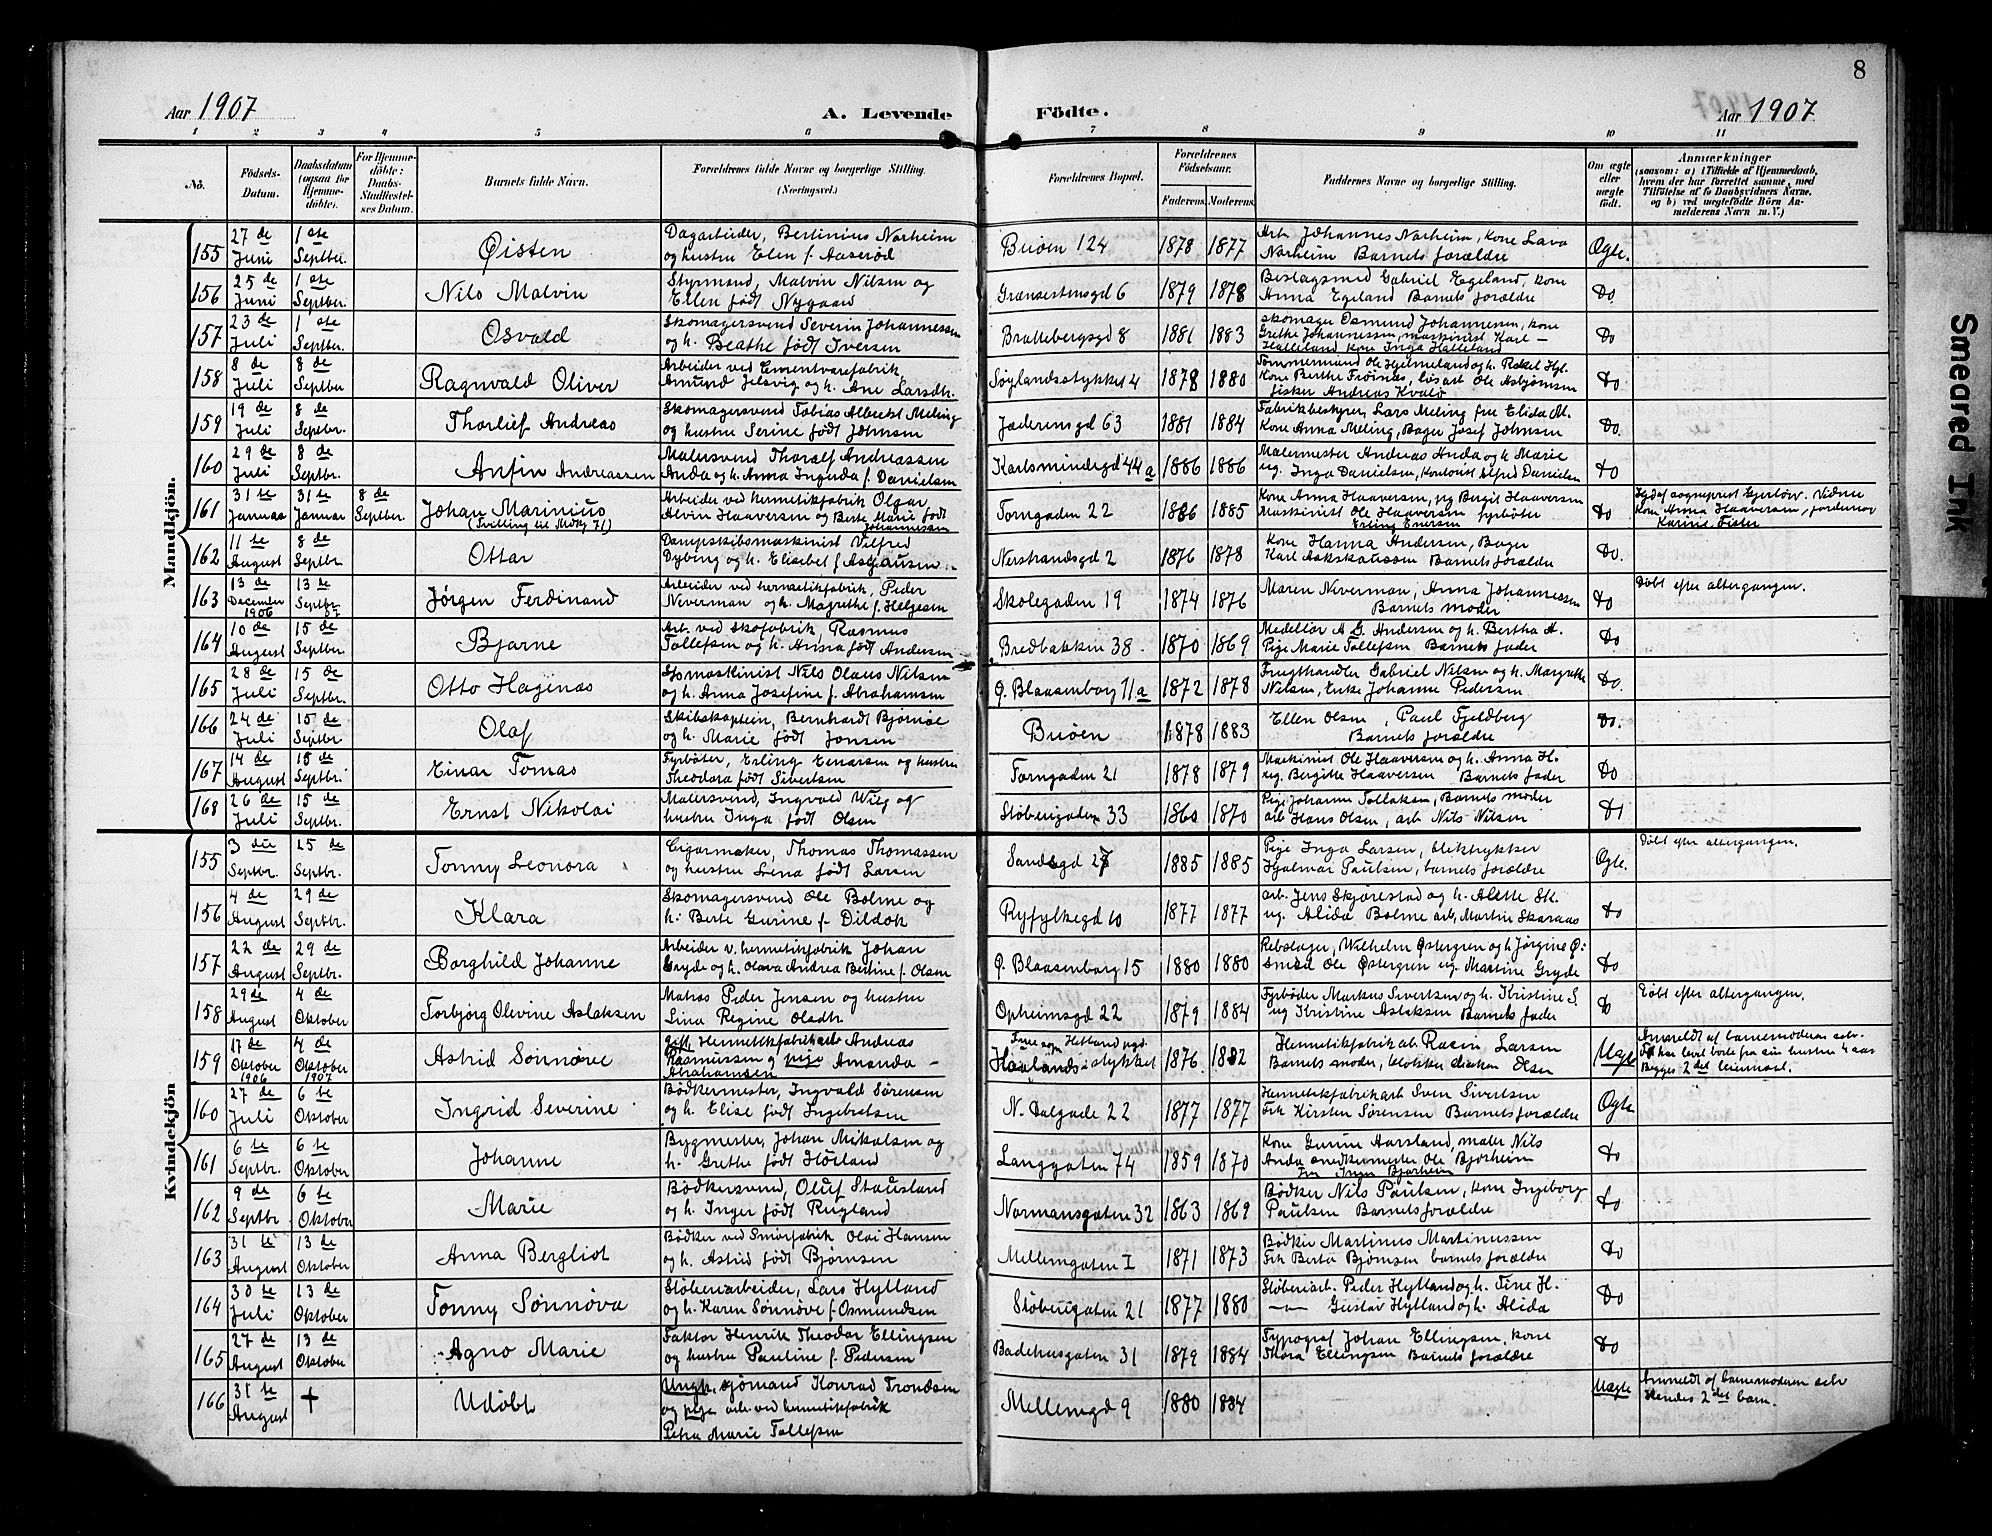 8
Aar 1907 A. Levende Födte. Aar 1907
1 2 3 4 5 6 7 8 9 10 11
No. Födsels-Datum. Daabsdatum (ogsaa for Hjemmedöbte). For Hjemmedöbte: Daabs-Stadfæstelses Datum. Barnets fulde Navn. Forældrenes fulde Navne og borgerlige Stilling. (Næringsvei.) Forældrenes Bopæl. Forældrenes Födselsaar. Faderens. Moderens. Faddernes Navne og borgerlige Stilling. Om ægte eller uægte födt. Anmærkninger (saasom: a) i Tilfælde af Hjemmedaab, hvem der har forrettet samme, med Tilföielse af to Daabsvidners Navne, og b) ved uægtefödte Börn Anmelderens Navn m. V.)
Mandkjön.
155 27 de Juni 1 ste Septbr. Øisten Dagarbeider, Bertinius Norheim og hustru Elen f. Aaserød Buøen 124 1878 1877 Arb. Johannes Norheim, Kone Lava Norheim Barnets forældre Ogte.
156 25 de Juni 1 ste Septbr. Nils Malvin Styrmand, Malvin Nilsen og Ellen født Nygaard Grænsestensgd 6 1879 1878 Beslagsmed Gabriel Egeland, kone Anna Egeland Barnets forældre Do.
157 23 de Juli 1 ste Septbr. Osvald Skomagersvend Severin Johannessen og h. Beathe født Iversen Brattebergsgd 8 1881 1883 skomager Osmund Johannessen, kone Grethe Johannessen, maskinist Karl Halleland kone Inga Halleland Do
158 8 de Juli 8 de Septbr. Ragnvald Oliver Arbeider ved Cementvarefabrik Amund Jelsvig og h. Ane Larsdtr. Søylandsstykket 4 1878 1880 Tømmermand Ole Hjelmeland og h. Rakel Hjl. Kone Berthe Frøines, løsarb Ole Asbjørnsen fisker Andreas Kvalø Do
159 19 de Juli 8 de Septbr. Thorlief Andreas Skomagersvend Tobias Albert Meling og hustru Serine født Johnsen Jæderensgd 63 1881 1884 Fabrikbestyrer Lars Meling fru Elida M. Kone Anna Meling, Bager Josef Johnsen Do.
160 29 de Juli 8 de Septbr. Anfin Andreassen Malersvend Thoralf Andreassen Anda og h. Anna Ingerda f. Danielsen Karlsmindegd 44 a 1886 1886 Malermester Andreas Anda og h. Marie ug. Inga Danielsen, Kontorist Alfred Danielsen Do
161 31 te Januar 31 te Januar 8 de Septbr. Johan Marinius (Tvilling til Mdkj 71) Arbeider ved hermetikfabrik Olgar Alvin Haaversen og Berte Marie født Johannessen Torngaden 22 1886 1885 Kone Anna Haaversen, pg Bergit Haaversen Maskinist Ole Haaversen fyrbøter Erling Enersen Do Kone Anna Haaversen, jordemor Karine Fister
162 11 te August 8 de Septbr Ottar Dampskibsmaskinist Vilfred Dybing og h. Elisebet f. Asgausen Nerstrandsgd 2 1876 1878 Kone Hanna Andersen, Bager Karl Barnets forældre Do.
163 13 de December 1906 13 de Septbr. 07 Jørgen Ferdinand Arbeider ved hermetikfabrik, Peder Neverman og h. Magrethe f. Helgesen Skolegaden 19 1874 1876 Maren Neverman, Anna Johannessen Barnets moder Do Døbt efter altergangen.
164 10 de August 15 de Septbr. Bjarne Arb. ved skofabrik, Rasmus Tollefsen og h. Anna født Andersen Bredbakken 38. 1870 1869 Medellør A. G. Andersen og h. Bertha A. Pige Marie Tollefsen Barnets fader Do
165 28 de Juli 15 de Septbr. Otto Hagenas Skomaskinist Nils Olaus Nilsen og h. Anna Josefine f. Abrahamsen Ø. Blaasenborg 11 a 1872 1878 Frugthandler Gabriel Nilsen og h. Margrethe Nilsen, Enke Johanne Pedersen Do.
166 24 de Juli 15 de Septbr. Olaf Skibskaptein, Bernhardt Bjørnøe og h. Marie født Jonsen Buøen 1878 1883 Ellen Olsen, Paul Fjeldberg Barnets forældre Do.
167 14 de August 15 de Septbr. Einar Tomas Fyrbøter, Erling Enersen og hustru Theodora født Sivertsen Torngaden 21 1878 1879 Maskinist Ole Haaversen og h. Anna H. ug. Bergitte Haaversen Barnets fader Do
168 26 de Juli 15 de Septbr. Ernst Nikolai Malersvend, Ingvald Wiig og hustru Inga født Olsen Støberigaden 33 1860 1870 Pige Johanne Tollaksen, Barnets moder arb Hans Olsen, arb Nils Nilsen Do
Kvindekjön
155 3 die Septbr. 25 de Septbr. Tonny Leonora Cigarmaker, Thomas Thomassen og hustru Lena født Larsen Sandsgd 27 1885 1885 Pige Inga Larsen, bliktrykker Hjalmar Paulsen, barnets forældre Ogte. Døbt efter altergangen.
156 4 de August 29 de Septbr Klara Skomagersvend Ole Bolme og h: Berte Gurine f. Dildok Ryfylkegd 10 1877 1877 arb. Jens Skjørestad og h. Alette Sk. ug. Alida Bolme arb. Martin Skaraas Do
157 22 de August 29 de Septbr. Borghild Johanne Arbeider v. hermetikfabrik Johan Gryde og h. Olava Andrea Bertine f. Olsen Ø. Blaasenborg 15 1880 1880 Rebslager, Wilhelm Østergren og h Jørgine Ø: Smed Ole Østergren ug. Martine Gryde Do
158 29 de August 4 de Oktober Torbjørg Olevine Aslaksen Matros Peder Jensen og hustru Lina Regine Olsdtr Opheimsgd 22 1879 1884 Fyrbøder Markus Sivertsen og h. Kristine S. ug Kristine Aslaksen Barnets fader Do Døbt efter altergangen.
159 17 de Oktober 1906 4 de Oktober 1907 Astrid Sønnøve gift Hermetikfabrikarb Andreas Rasmussen og pige Amanda Abrahamsen Haalandsstykket 1876 1882 Hermetikfabrik arb. Rasin Larsen Barnets moder, Olsen Uægte Anmeldt af barnemoderen selv. F. har levet borte fra sin hustru 4 aar Begges 2 det leiermaal.
160 27 de Juli 6 te Oktober Ingrid Severine Bødkermester, Ingvald Sørensen og h. Elise født Ingebretsen N. Dalgade 22 1877 1877 Hermetikfabrikarb Sven Sivertsen Frk Kirsten Sørensen Barnets forældre Ogte
161 6 te Septbr. 6 te Oktober Johanne Bygmester, Johan Mikalsen og h. Grethe født Høiland Langgaten 74 1859 1870 Kone Gurine Aarsland, maler Nils Anda snedkermester Ole Bjorheim Fru Inga Bjorheim Do
162 9 de Septbr 6 te Oktober Marie Bødkersvend, Oluf Stausland og h. Inger født Rugland Normansgaten 32 1863 1869 Bødker Nils Paulsen, kone Ingeborg Paulsen Barnets forældre Do
163 31 te August 13 de Oktober Anna Bergliot Bødker ved Smørfabrik Olai Hansen og h. Astrid født Bjørnsen Mellemgaten I 1871 1873 Bødker Martinus Martinussen Frk Berta Bjørnsen barnets forældre Do
164 30 te Juli 13 de Oktober Tonny Sønnøva Støberiarbeider, Lars Hylland og h. Karen Sønnøve f. Osmundsen Støberigaten 21 1877 1880 Støberiarb. Peder Hylland og h. Tine H. —"— Gustav Hylland og h. Alida Do
165 27 de August 13 de Oktober Agno Marie Faktor Henrik Theodor Ellingsen og hustru Pauline f. Pedersen Badehusgaten 31 1879 1884 Typograf Johan Ellingsen, kone Thora Ellingsen Barnets forældre Do
166 31 te August + Udøbt Ungk. sjømand Konrad Trondsen og pige arb. ved hermetikfabrik Petra Marie Tollefsen Mellemgd 9 1880 1884 Uægte Anmeldt af barnemoderen selv Hendes 2 det barn.
Smeared Ink